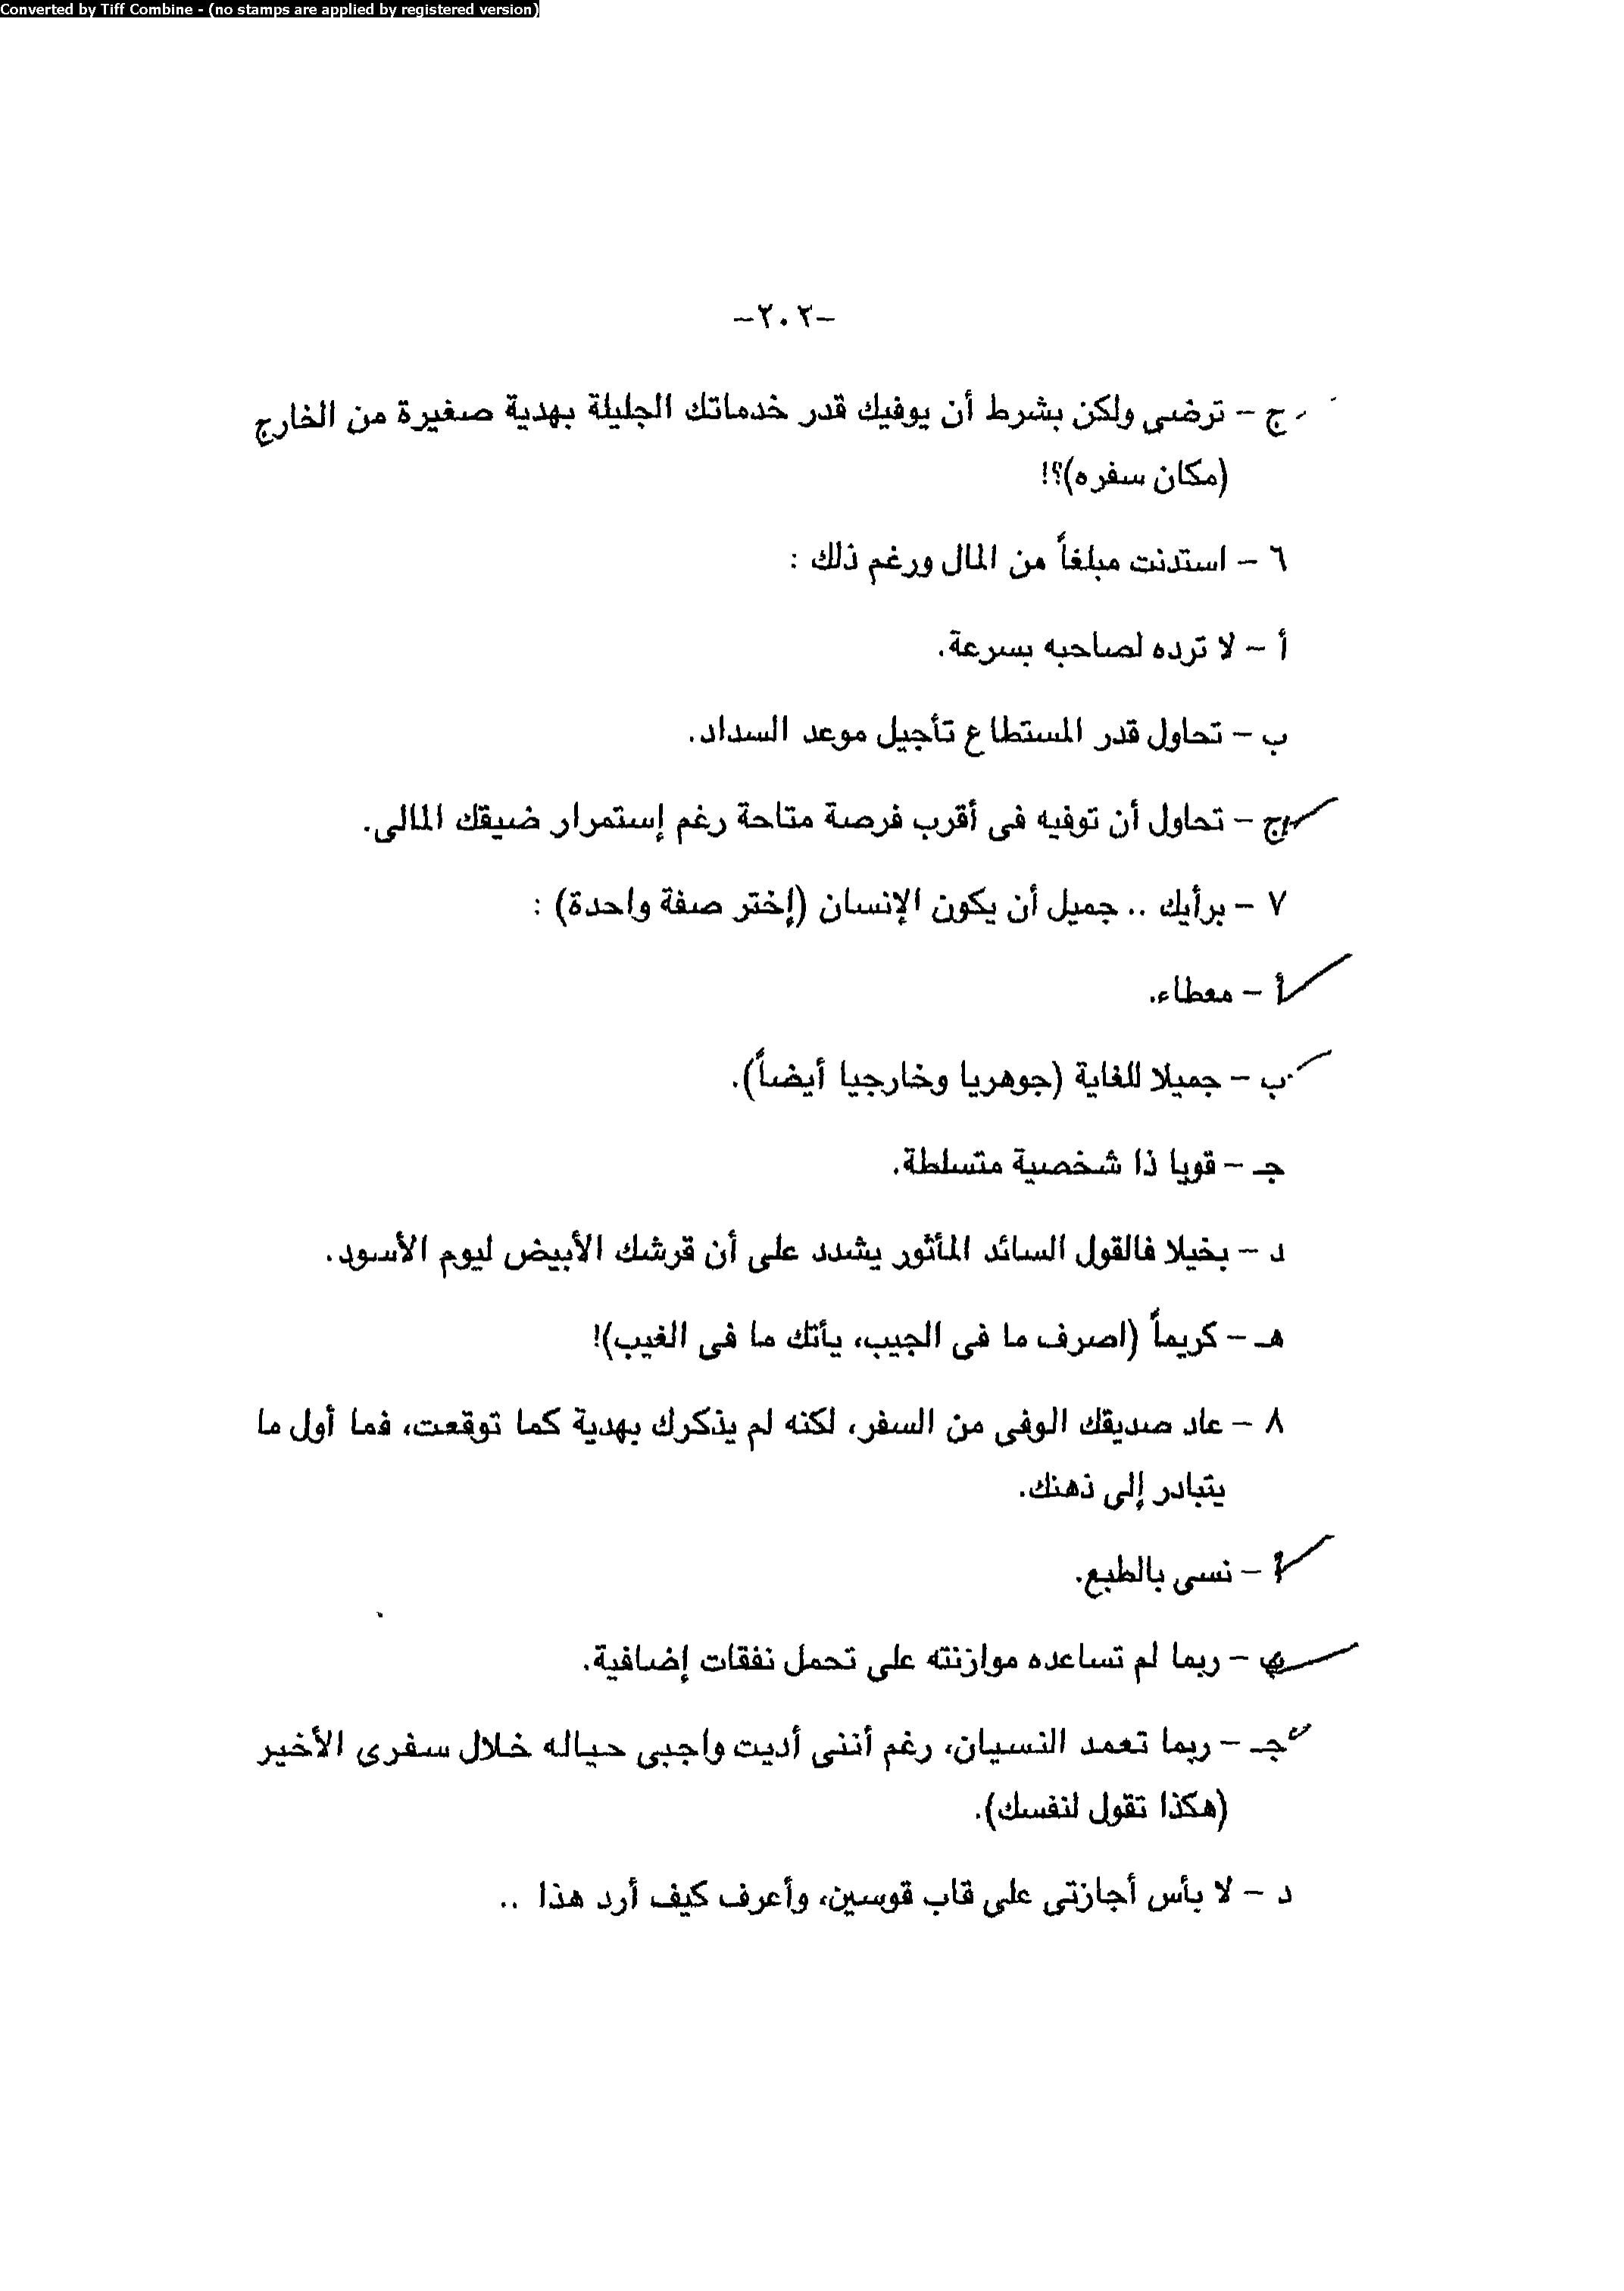 Converted by Tiff Combine - (no stamps are applied by registered version)
-٢٠٢-
ج - ترضى ولكن بشرط أن يوفيك قدر خدماتك الجليلة بهدية صغيرة من الخارج
(مكان سفره)؟!
٦ - استدنت مبلغاً من المال ورغم ذلك :
أ - لا ترده لصاحبه بسرعة.
ب - تحاول قدر المستطاع تأجيل موعد السداد.
ج - تحاول أن توفيه فى أقرب فرصة متاحة رغم إستمرار ضيقك المالى.
٧ - برأيك .. جميل أن يكون الإنسان (إختر صفة واحدة) :
أ - معطاء.
ب - جميلا للغاية (جوهريا وخارجيا أيضاً).
جـ - قويا ذا شخصية متسلطة.
د - بخيلا فالقول السائد المأثور يشدد على أن قرشك الأبيض ليوم الأسود.
هـ - كريماً (اصرف ما فى الجيب، يأتك ما فى الغيب)!
٨ - عاد صديقك الوفى من السفر، لكنه لم يذكرك بهدية كما توقعت، فما أول ما
يتبادر إلى ذهنك.
أ - نسى بالطبع.
ب - ربما لم تساعده موازنته على تحمل نفقات إضافية.
جـ - ربما تعمد النسيان، رغم أننى أديت واجبى حياله خلال سفرى الأخير
(هكذا تقول لنفسك).
د - لا بأس أجازتى على قاب قوسين، وأعرف كيف أرد هذا ..